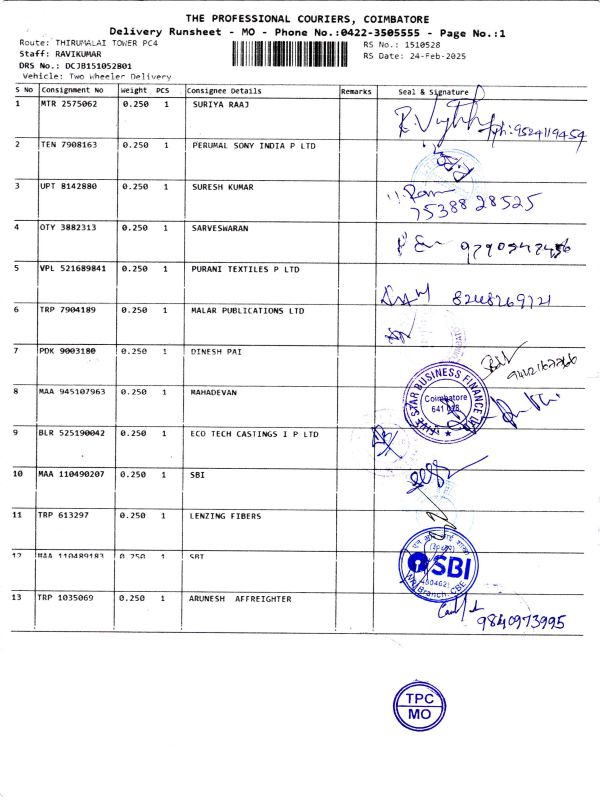 THE PROFESSIONAL COURIERS, COIMBATORE
Delivery Runsheet - MO - Phone No.:0422-3505555 - Page No.:1
Route: THIRUMALAI TOWER PC4
RS No.: 1510528
Staff: RAVIKUMAR
RS Date: 24-Feb-2025
DRS No.: DCJB151052801
Vehicle: Two Wheeler Delivery
S No Consignment No Weight PCS Consignee Details Remarks Seal & Signature
1 MTR 2575062 0.250 1 SURIYA RAAJ
ph: 9524119454
2 TEN 7908163 0.250 1 PERUMAL SONY INDIA P LTD
3 UPT 8142880 0.250 1 SURESH KUMAR
75388 28525
4 OTY 3882313 0.250 1 SARVESWARAN
5 VPL 521689841 0.250 1 PURANI TEXTILES P LTD
6 TRP 7904189 0.250 1 MALAR PUBLICATIONS LTD
7 PDK 9003180 0.250 1 DINESH PAI
8 MAA 945107963 0.250 1 MAHADEVAN
FIVE STAR BUSINESS FINANCE
Coimbatore
9 BLR 525190042 0.250 1 ECO TECH CASTINGS I P LTD
10 MAA 110490207 0.250 1 SBI
11 TRP 613297 0.250 1 LENZING FIBERS
12 MAA 110489183 0.250 1 SBI
SBI
Branch, CBE
13 TRP 1035069 0.250 1 ARUNESH AFFREIGHTER
9840973995
TPC
MO